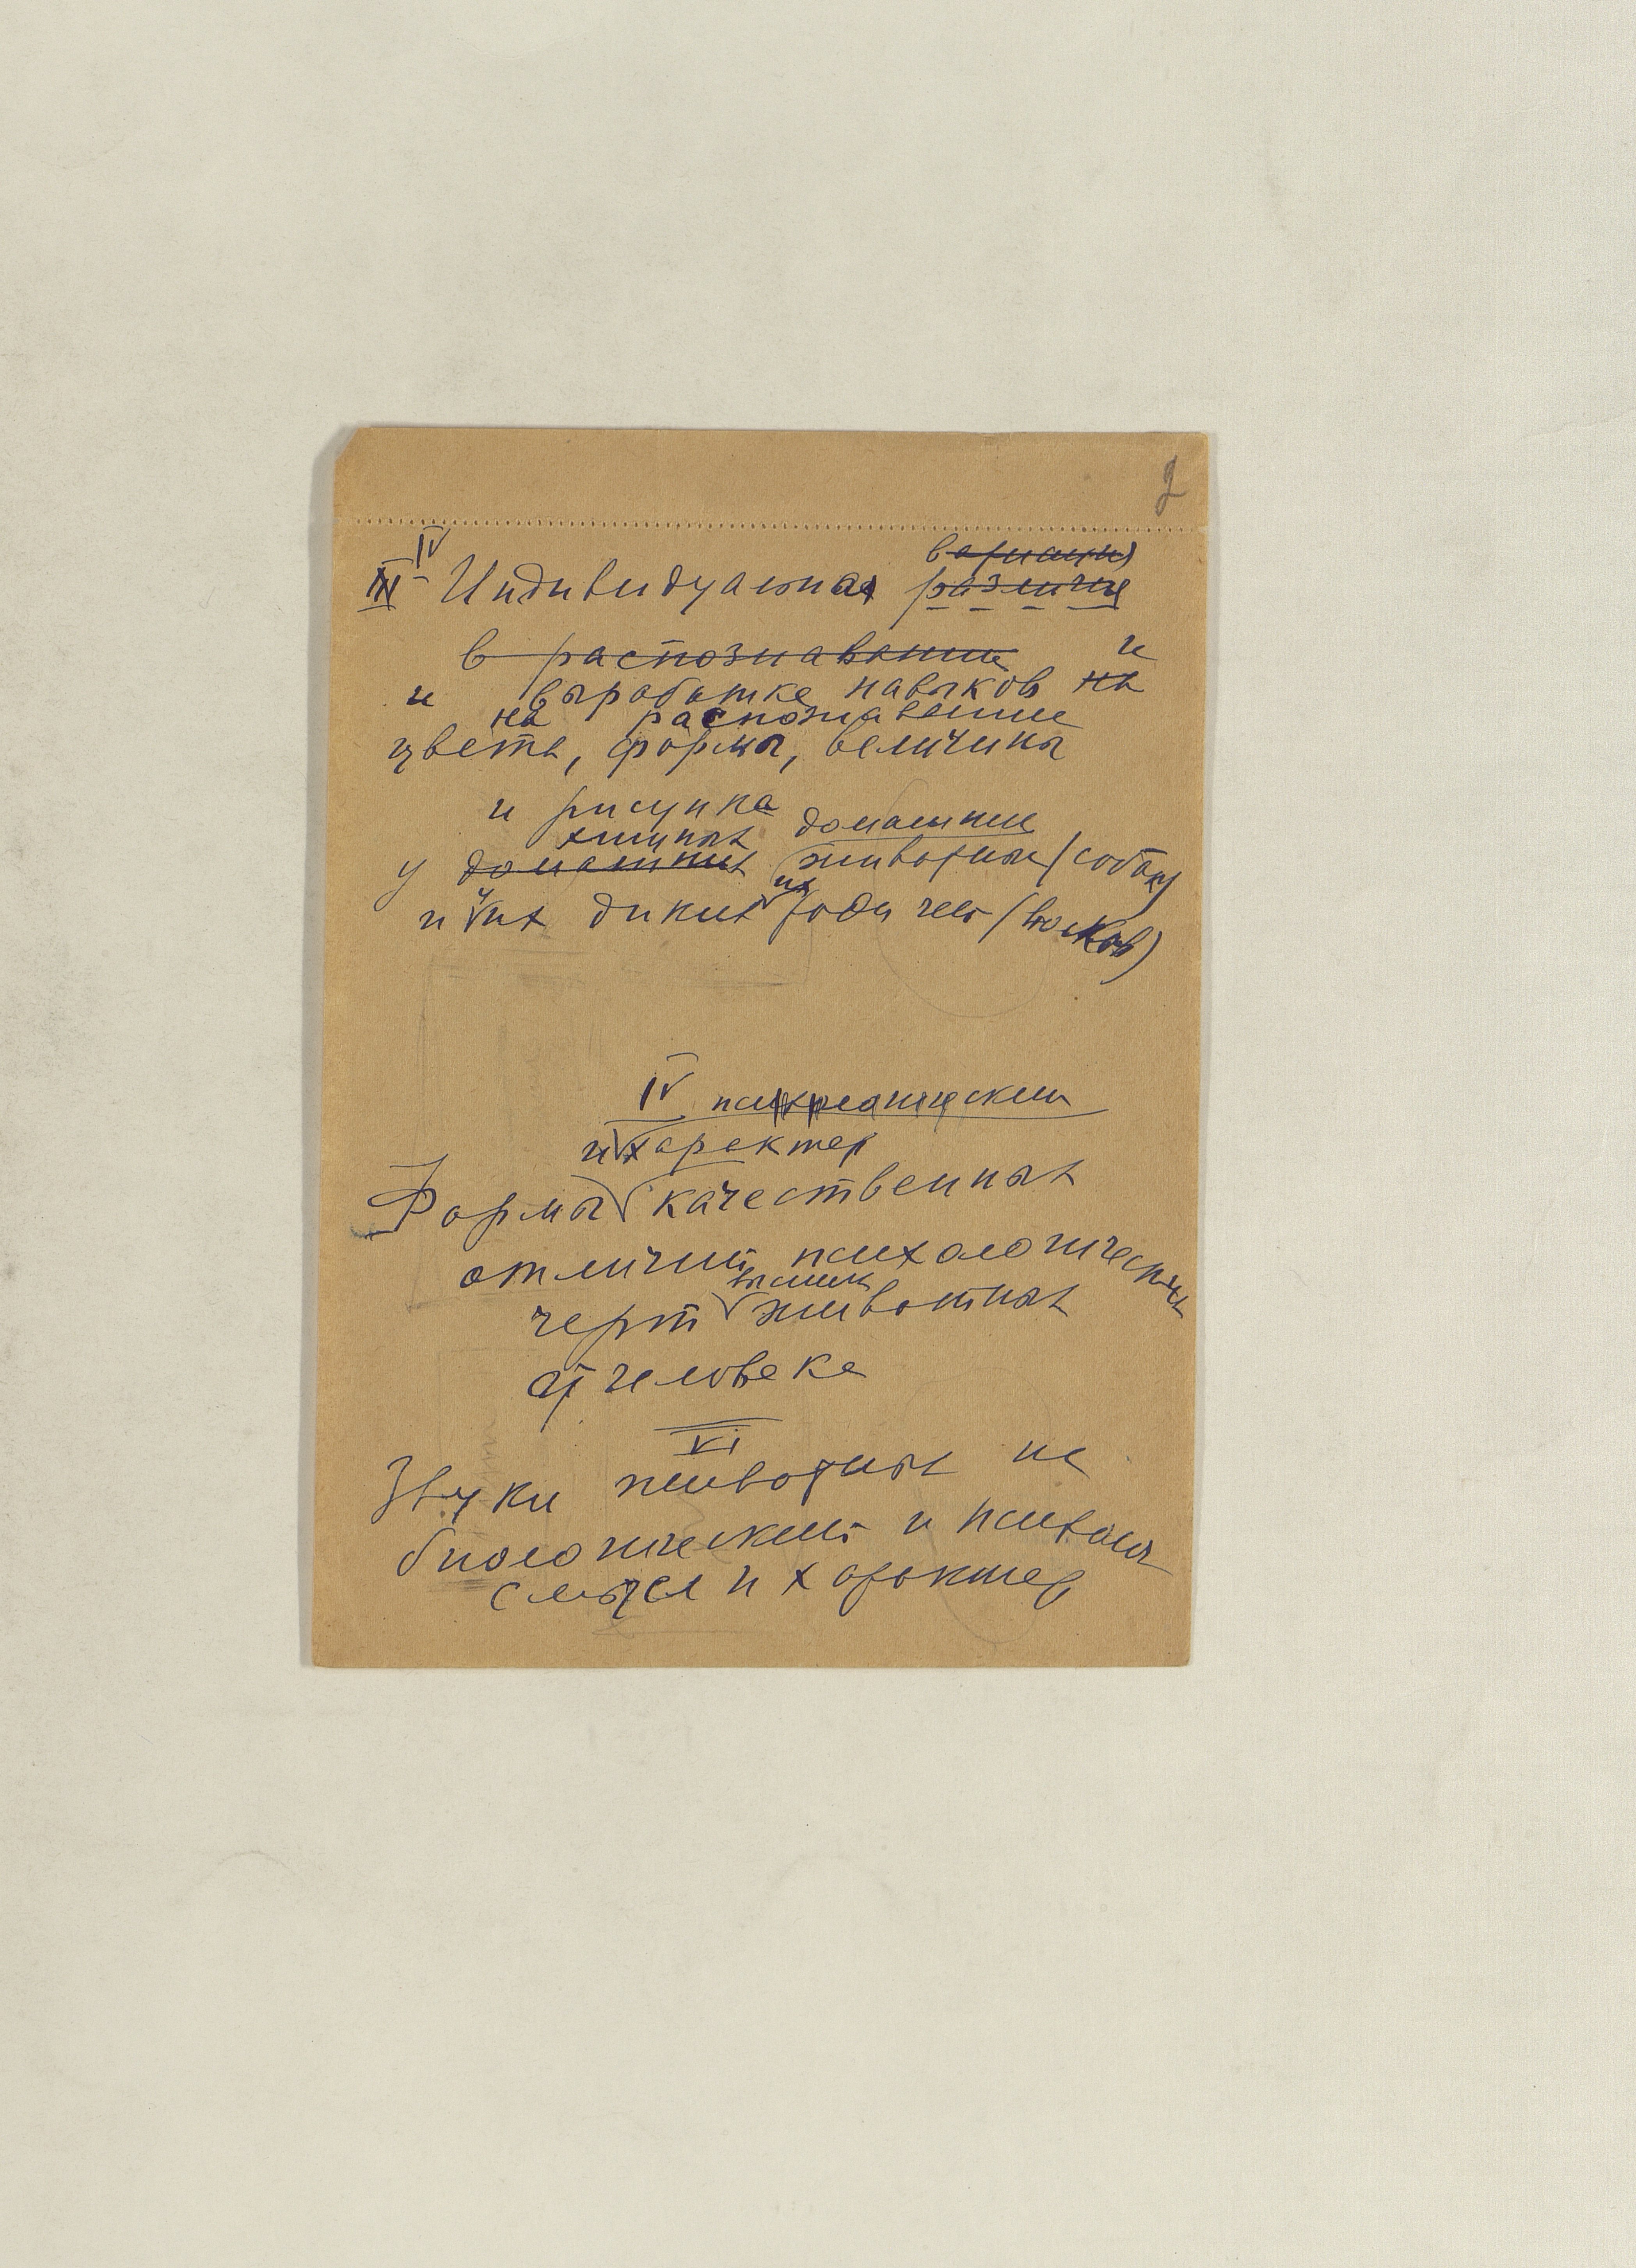 2
IV
вариации
III Индивидуальная различия
в распознавании и
и выработке навыков на
на распознавание
цвета, формы, величины
и рисунка
хищных домашних
у домашних животных (собак)
и у их диких их родичей (волков)
IV
и характер
Формы качественных
отличий психологических
высших
черт животных
от человека
VI
Звуки животных их
биологический и психолог
смысл и характер